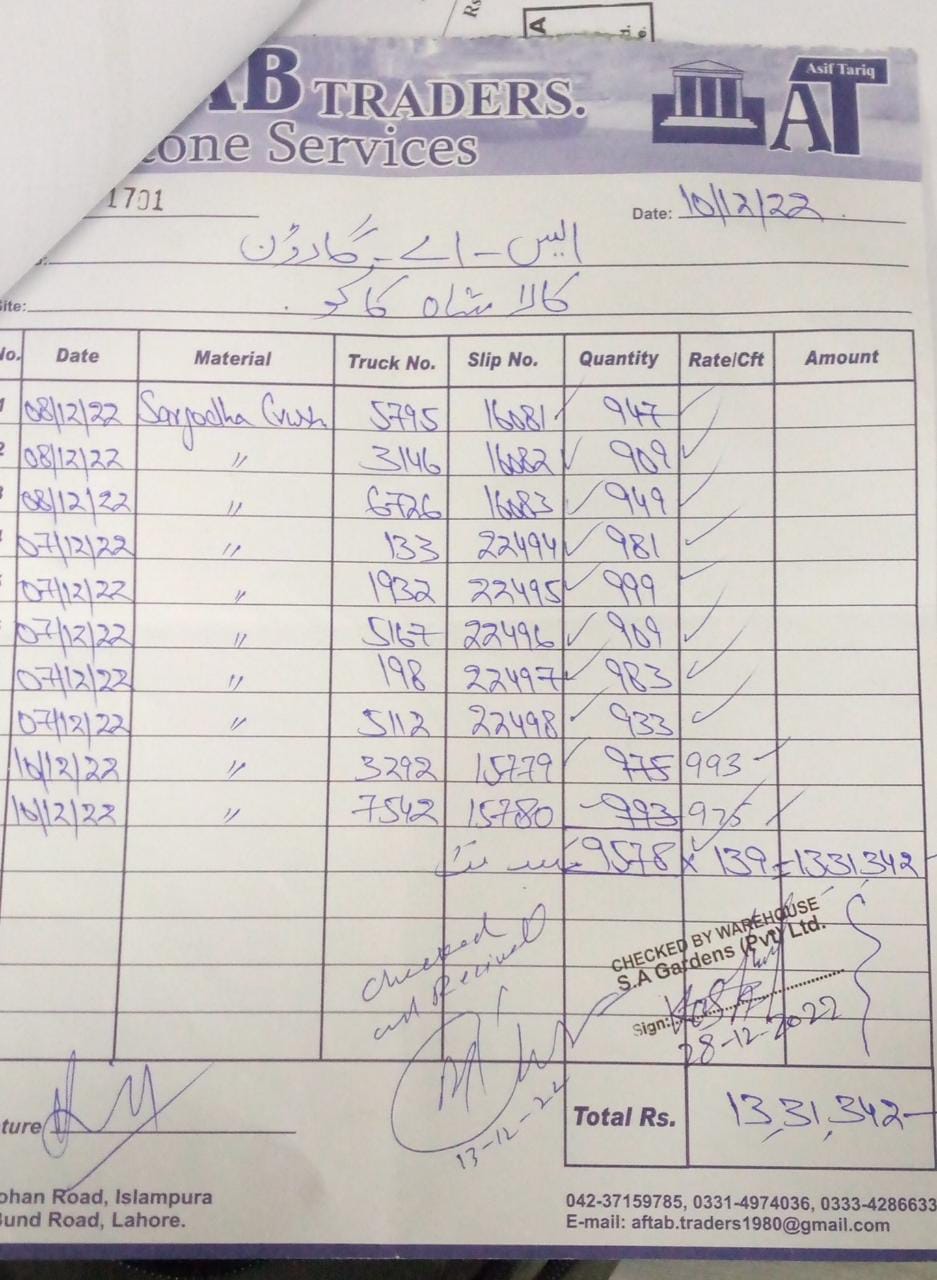 Rs
A
d.
e.
AB TRADERS.
one Services
Asif Tariq
AT
1701
Date: 10/12/22
ایس - اے - گارڈن
Site: کالا شاہ کاکو
No. Date Material Truck No. Slip No. Quantity Rate/Cft Amount
1 08/12/22 Sargodha Crush 5795 16081 ✓ 947 ✓
2 08/12/22 〃 3146 16082 ✓ 909 ✓
3 08/12/22 〃 6726 16083 ✓ 949 ✓
07/12/22 〃 133 22494 ✓ 981 ✓
07/12/22 〃 1932 22495 ✓ 999 ✓
07/12/22 〃 5167 22496 ✓ 909 ✓
07/12/22 〃 198 22497 ✓ 983 ✓
07/12/22 〃 5112 22498 ✓ 933 ✓
10/12/22 〃 3292 15779 ✓ 975 993 ✓
10/12/22 〃 7542 15780 993 975 ✓
9578 x 139 = 1331342
checked
and Recived
CHECKED BY WAREHOUSE
S.A Gardens (Pvt) Ltd.
Sign:
28-12-2022
13-12-22
ture
Total Rs. 13,31,342
ohan Road, Islampura
Bund Road, Lahore.
042-37159785, 0331-4974036, 0333-4286633
E-mail: aftab.traders1980@gmail.com